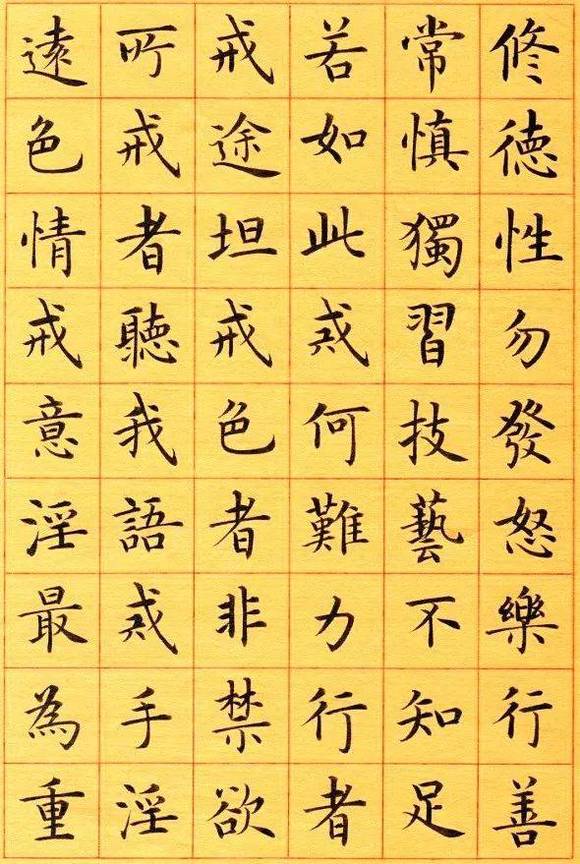 修德性勿發怒樂行善
常慎獨習技藝不知足
若如此戒何難力行者
戒途坦戒色者非禁欲
所戒者聽我語戒手淫
遠色情戒意淫最為重